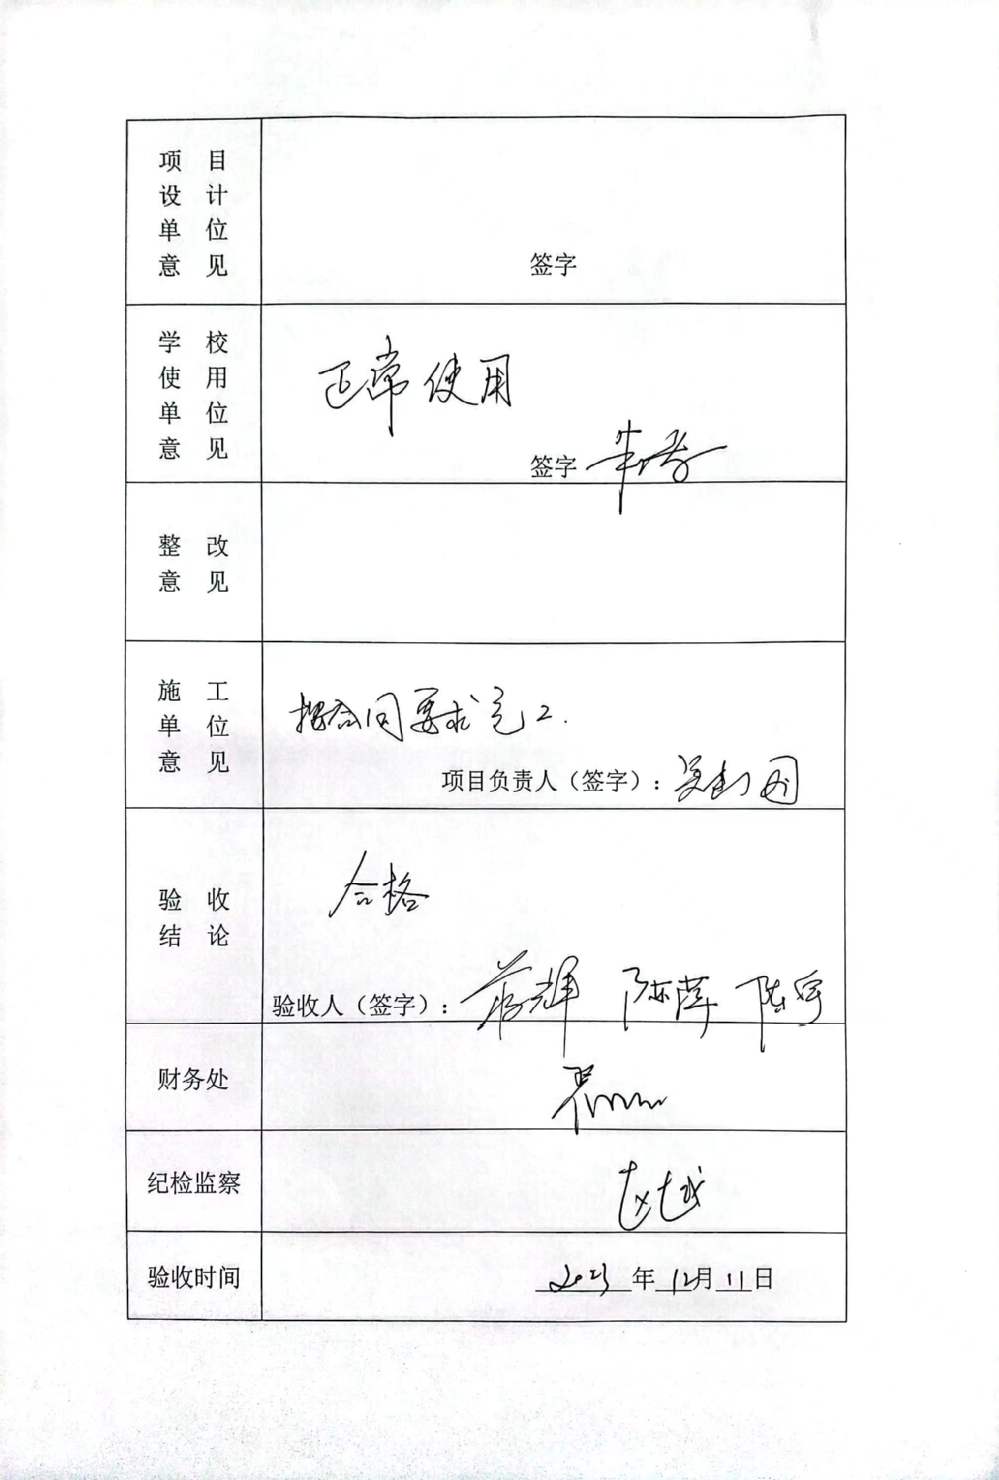 项 目
设 计
单 位
意 见
签字
学 校
使 用
单 位
意 见
正常使用
签字
整 改
意 见
施 工
单 位
意 见
按合同要求完工.
项目负责人（签字）：
验 收
结 论
合格
验收人（签字）： 陈萍 陈宇
财务处
纪检监察
赵越
验收时间
2023 年 12月 11 日